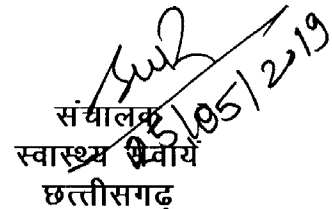 25/05/2019
संचालक
स्वास्थ्य सेवायें
छत्तीसगढ़